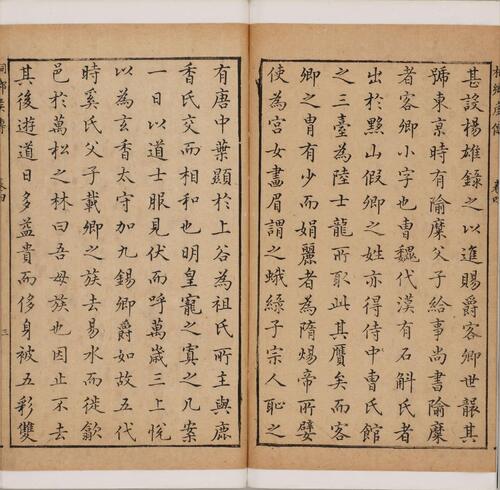 甚設楊雄錄之以進賜爵客卿世襲其
號東京時有隃糜父子給事尚書隃糜
者客卿小字也曹魏代漢有石斛氏者
出於黟山假卿之姓亦得侍中曹氏館
之三臺為陸士龍所取此其贋矣而客
卿之胄有少而娟麗者為隋煬帝所嬖
使為宮女畵眉謂之蛾綠子宗人恥之
有唐中葉顯於上谷為祖氏所主與鹿
香氏交而相和也明皇寵之寘之几案
一日以道士服見伏而呼萬歲三上悅
以為玄香太守加九錫卿爵如故五代
時奚氏父子載卿之族去易水而徙歙
邑於萬松之林曰吾母族也因止不去
其後遊道日多益貴而侈身被五彩雙
三